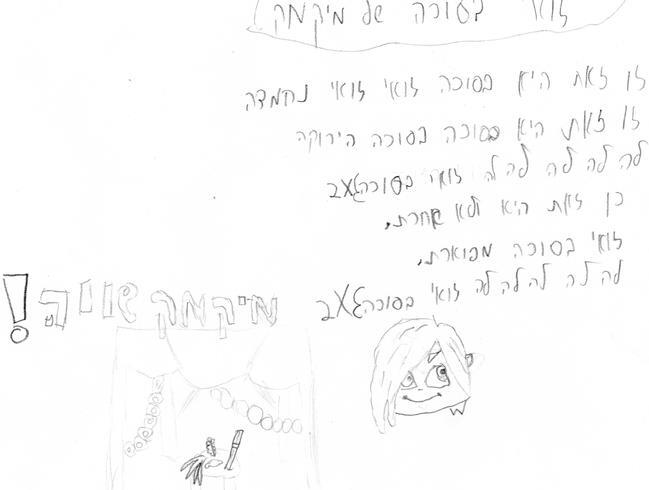 זואי בסוכה של מיקמק
כן זאת היא בסוכה זואי זואי נחמדה
כן זאת היא בסוכה בסוכה הירוקה
לה לה לה לה לה זואי בסוכהX2
כן זאת היא ולא אחרת,
זואי בסוכה מפוארת,
לה לה לה לה לה זואי בסוכהX2
מיקמק שווה!